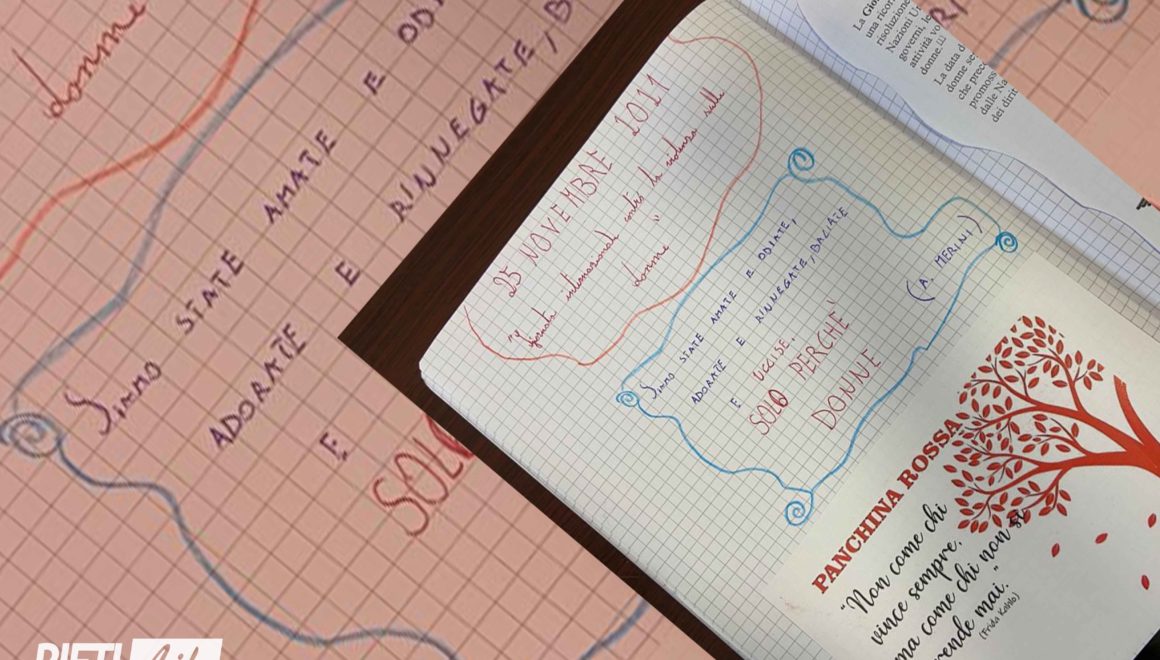 donne
SIAMO STATE AMATE E ODI
ADORATE E RINNEGATE, B
E
SOLO
25 NOVEMBRE 2021
"Giornata internazionale contro la violenza sulle
donne"
SIAMO STATE AMATE E ODIATE,
ADORATE E RINNEGATE, BACIATE
E UCCISE.
SOLO PERCHÈ
DONNE
(A. MERINI)
PANCHINA ROSSA
"Non come chi
vince sempre,
ma come chi non si
rende mai."
(Frida Kahlo)
La Gio
una ricor
risoluzione
Nazioni U
governi, le
attività vo
donne.[1]
La data d
donne se
che prec
promoss
dalle Na
dei dirit
RIETI life